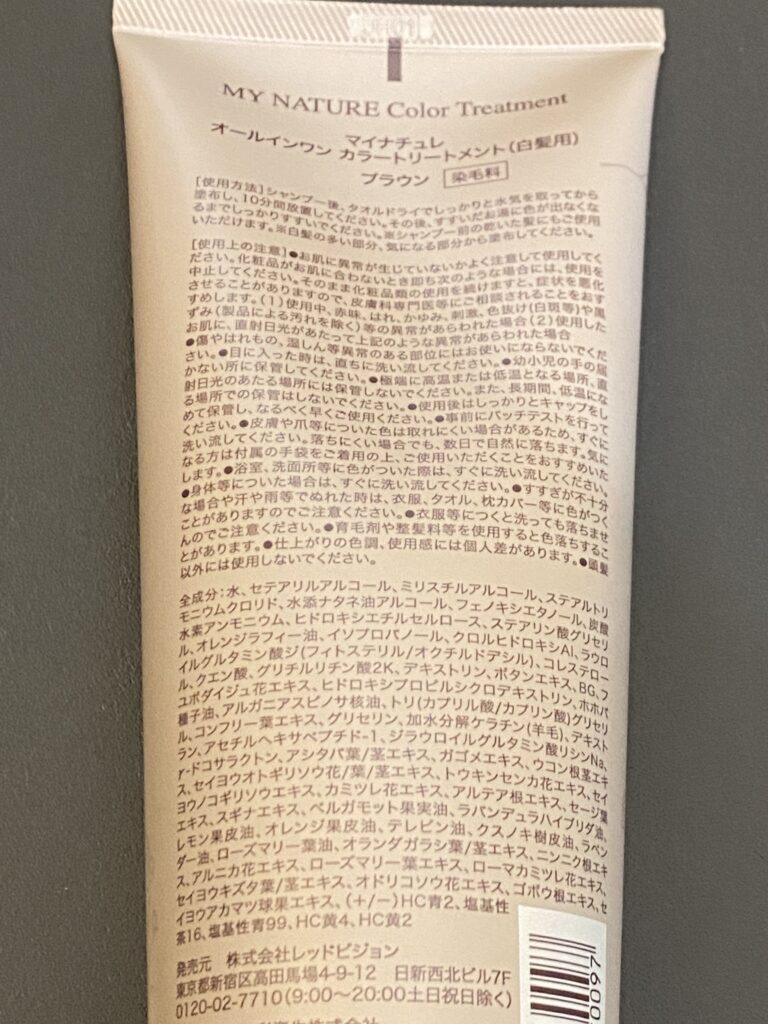 MY NATURE Color Treatment
マイナチュレ
オールインワン カラートリートメント(白髪用)
ブラウン 染毛料
[使用方法]シャンプー後、タオルドライでしっかりと水気を取ってから
塗布し、10分間放置してください。その後、すすいだお湯に色が出なくな
るまでしっかりすすいでください。※シャンプー前の乾いた髪にもご使用
いただけます。※白髪の多い部分、気になる部分から塗布してください。
[使用上の注意]●お肌に異常が生じていないかよく注意して使用してく
ださい。化粧品がお肌に合わないとき即ち次のような場合には、使用を
中止してください。そのまま化粧品類の使用を続けますと、症状を悪化
させることがありますので、皮膚科専門医等にご相談されることをおす
すめします。(1)使用中、赤味、はれ、かゆみ、刺激、色抜け(白斑等)や黒
ずみ(製品による汚れを除く)等の異常があらわれた場合(2)使用した
お肌に、直射日光があたって上記のような異常があらわれた場合
●傷やはれもの、湿しん等異常のある部位にはお使いにならないでくだ
さい。●目に入った時は、直ちに洗い流してください。●幼小児の手の届
かない所に保管してください。●極端に高温または低温となる場所、直
射日光のあたる場所には保管しないでください。また、長期間、低温にな
る場所での保管はしないでください。●使用後はしっかりとキャップをし
めて保管し、なるべく早くご使用ください。●事前にパッチテストを行って
ください。●皮膚や爪等についた色は取れにくい場合があるため、すぐに
洗い流してください。落ちにくい場合でも、数日で自然に落ちます。気に
なる方は付属の手袋をご着用の上、ご使用いただくことをおすすめいた
します。●浴室、洗面所等に色がついた際は、すぐに洗い流してください。
●身体等についた場合は、すぐに洗い流してください。●すすぎが不十分
な場合や汗や雨等でぬれた時は、衣服、タオル、枕カバー等に色がつく
ことがありますのでご注意ください。●衣服等につくと洗っても落ちませ
んのでご注意ください。●育毛剤や整髪料等を使用すると色落ちするこ
とがあります。●仕上がりの色調、使用感には個人差があります。●頭髪
以外には使用しないでください。
全成分:水、セテアリルアルコール、ミリスチルアルコール、ステアルトリ
モニウムクロリド、水添ナタネ油アルコール、フェノキシエタノール、炭酸
水素アンモニウム、ヒドロキシエチルセルロース、ステアリン酸グリセリ
ル、オレンジラフィー油、イソプロパノール、クロルヒドロキシAl、ラウロ
イルグルタミン酸ジ(フィトステリル/オクチルドデシル)、コレステロー
ル、クエン酸、グリチルリチン酸2K、デキストリン、ボタンエキス、BG、フ
ユボダイジュ花エキス、ヒドロキシプロピルシクロデキストリン、ホホバ
種子油、アルガニアスピノサ核油、トリ(カプリル酸/カプリン酸)グリセリ
ル、コンフリー葉エキス、グリセリン、加水分解ケラチン(羊毛)、デキスト
ラン、アセチルヘキサペプチド-1、ジラウロイルグルタミン酸リシンNa、
γ-ドコサラクトン、アシタバ葉/茎エキス、ガゴメエキス、ウコン根茎エキ
ス、セイヨウオトギリソウ花/葉/茎エキス、トウキンセンカ花エキス、セイ
ヨウノコギリソウエキス、カミツレ花エキス、アルテア根エキス、セージ葉
エキス、スギナエキス、ベルガモット果実油、ラバンデュラハイブリダ油、
レモン果皮油、オレンジ果皮油、テレビン油、クスノキ樹皮油、ラベン
ダー油、ローズマリー葉油、オランダガラシ葉/茎エキス、ニンニク根エキ
ス、アルニカ花エキス、ローズマリー葉エキス、ローマカミツレ花エキス、
セイヨウキズタ葉/茎エキス、オドリコソウ花エキス、ゴボウ根エキス、セ
イヨウアカマツ球果エキス、(+/−)HC青2、塩基性
茶16、塩基性青99、HC黄4、HC黄2
発売元 株式会社レッドビジョン
東京都新宿区高田馬場4-9-12 日新西北ビル7F
0120-02-7710(9:00〜20:00土日祝日除く)